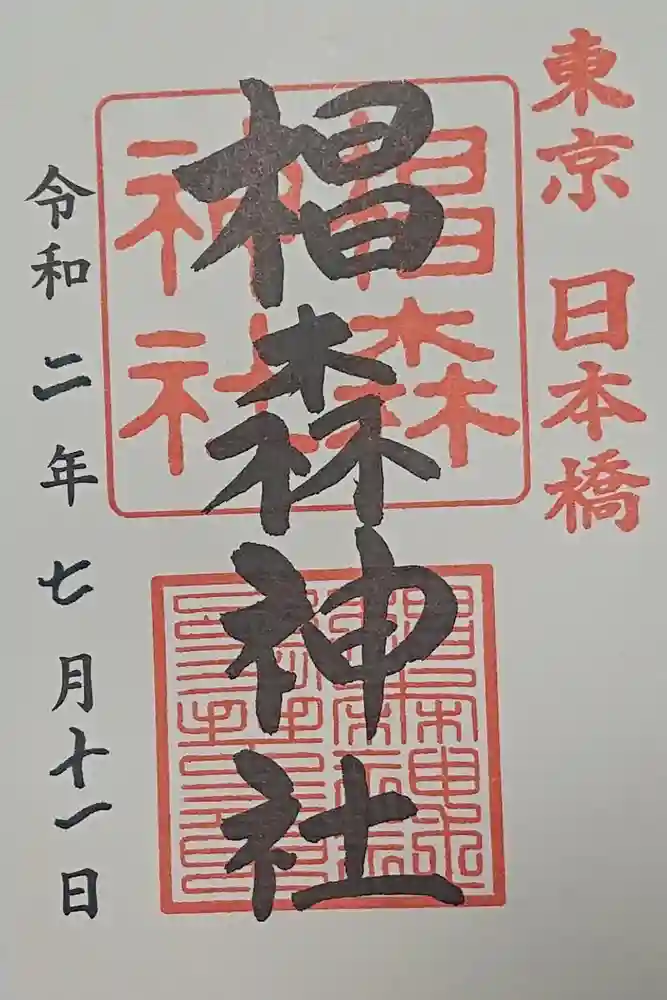 東京 日本橋
椙森神社
椙森
神社
令和二年七月十一日